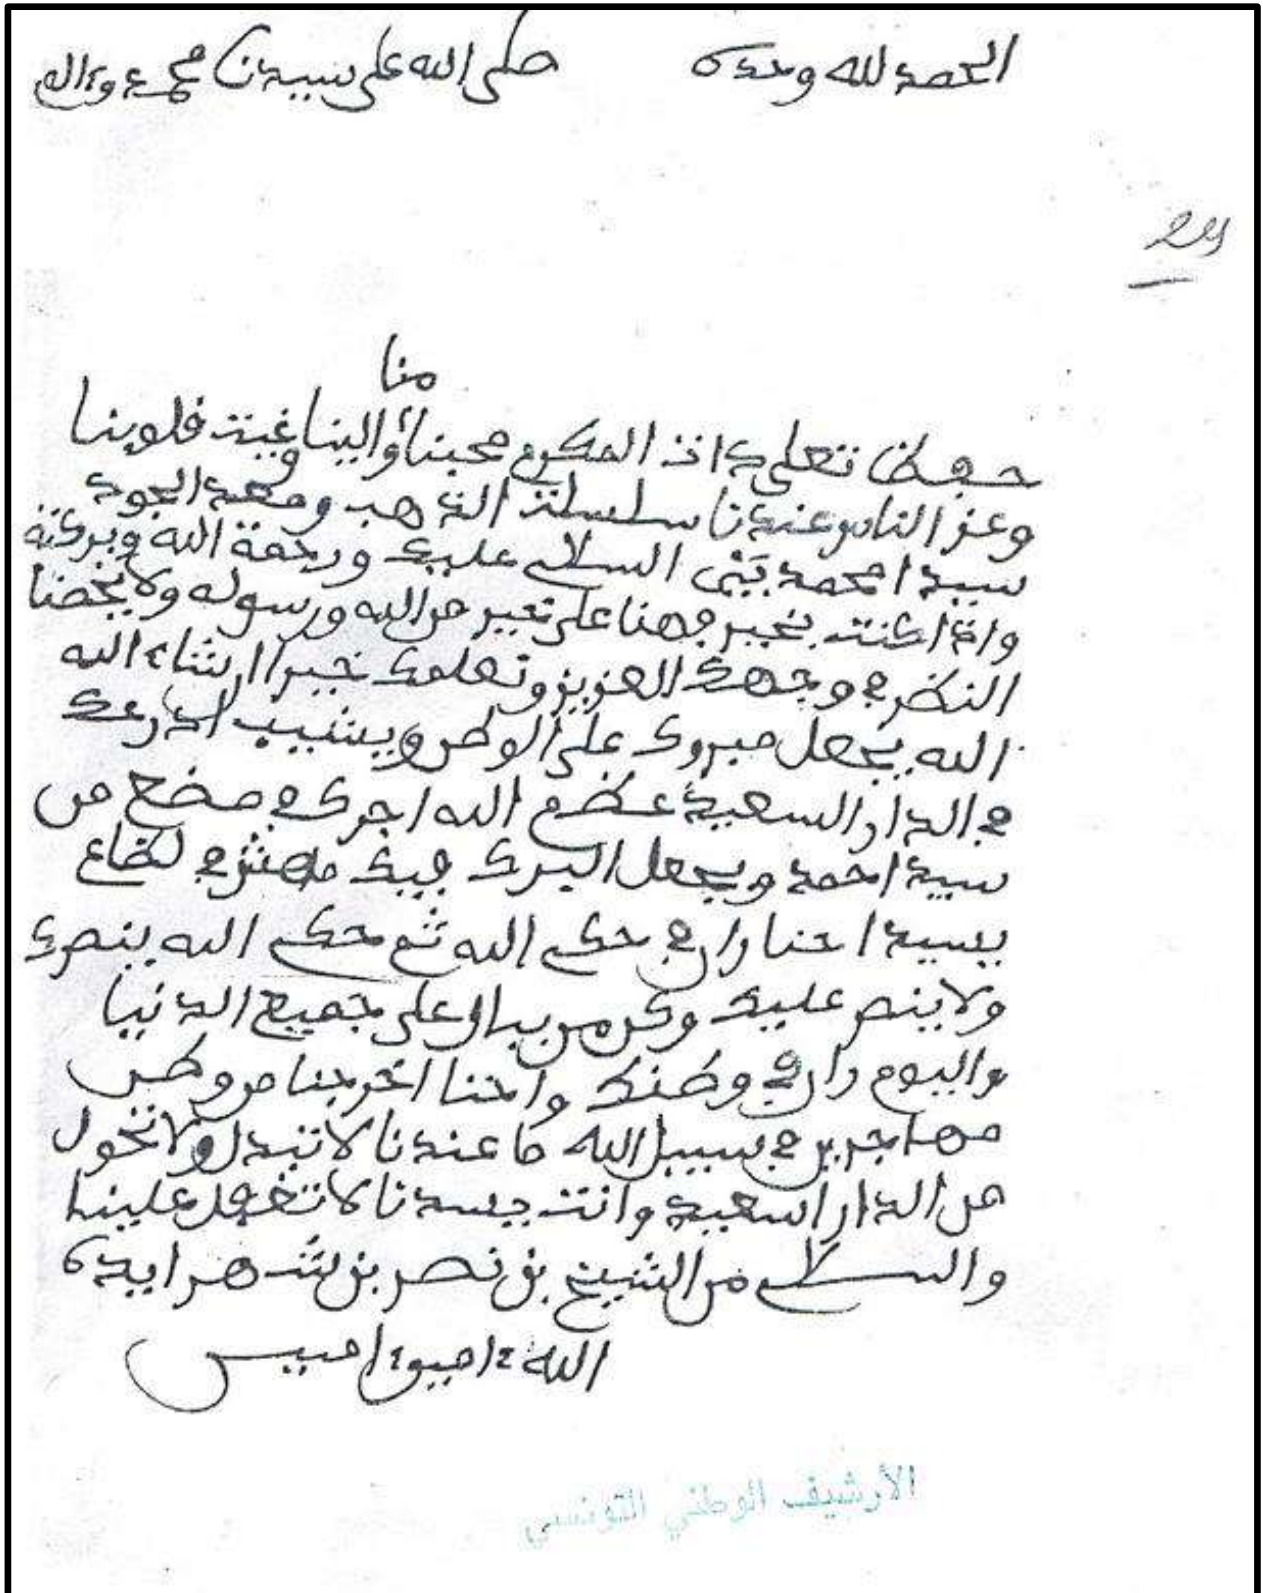 الحمد لله وحده صلى الله على سيدنا محمد وءاله
24
منا
حفظ تعلى ذات المكرم محبنا والينا غيت قلوبنا
وعز الناس عندنا سلسلت الذهب ومعد الجود
سيد امحمد السلام عليك ورحمة الله وبركته
واذا كنت بخير فهنا على تعبير من الله ورسوله ولا يخصنا
النضر في وجهك العزيز ونعلمك خيرا ان شاء الله
الله يجعل مبروك على الوطن ويشيب
في الدار السعيد عضم الله اجرك في
سيد احمد ويجعل البرك فيك
بسيد احنا ران في حكم الله ثم حكم الله ينصرك
ولا ينصر عليك على جميع الدنيا
واليوم ران في وطنك واحنا اخرجنا من وطن
مهاجرين في سبيل الله ما عندنا لا تبدل ولا تحول
من الدار السعيد وانت بسدنا لا تغفل علينا
والسلام من الشيخ بن نصر بن ايده
الله ءامين ءامين
الأرشيف الوطني التونسي